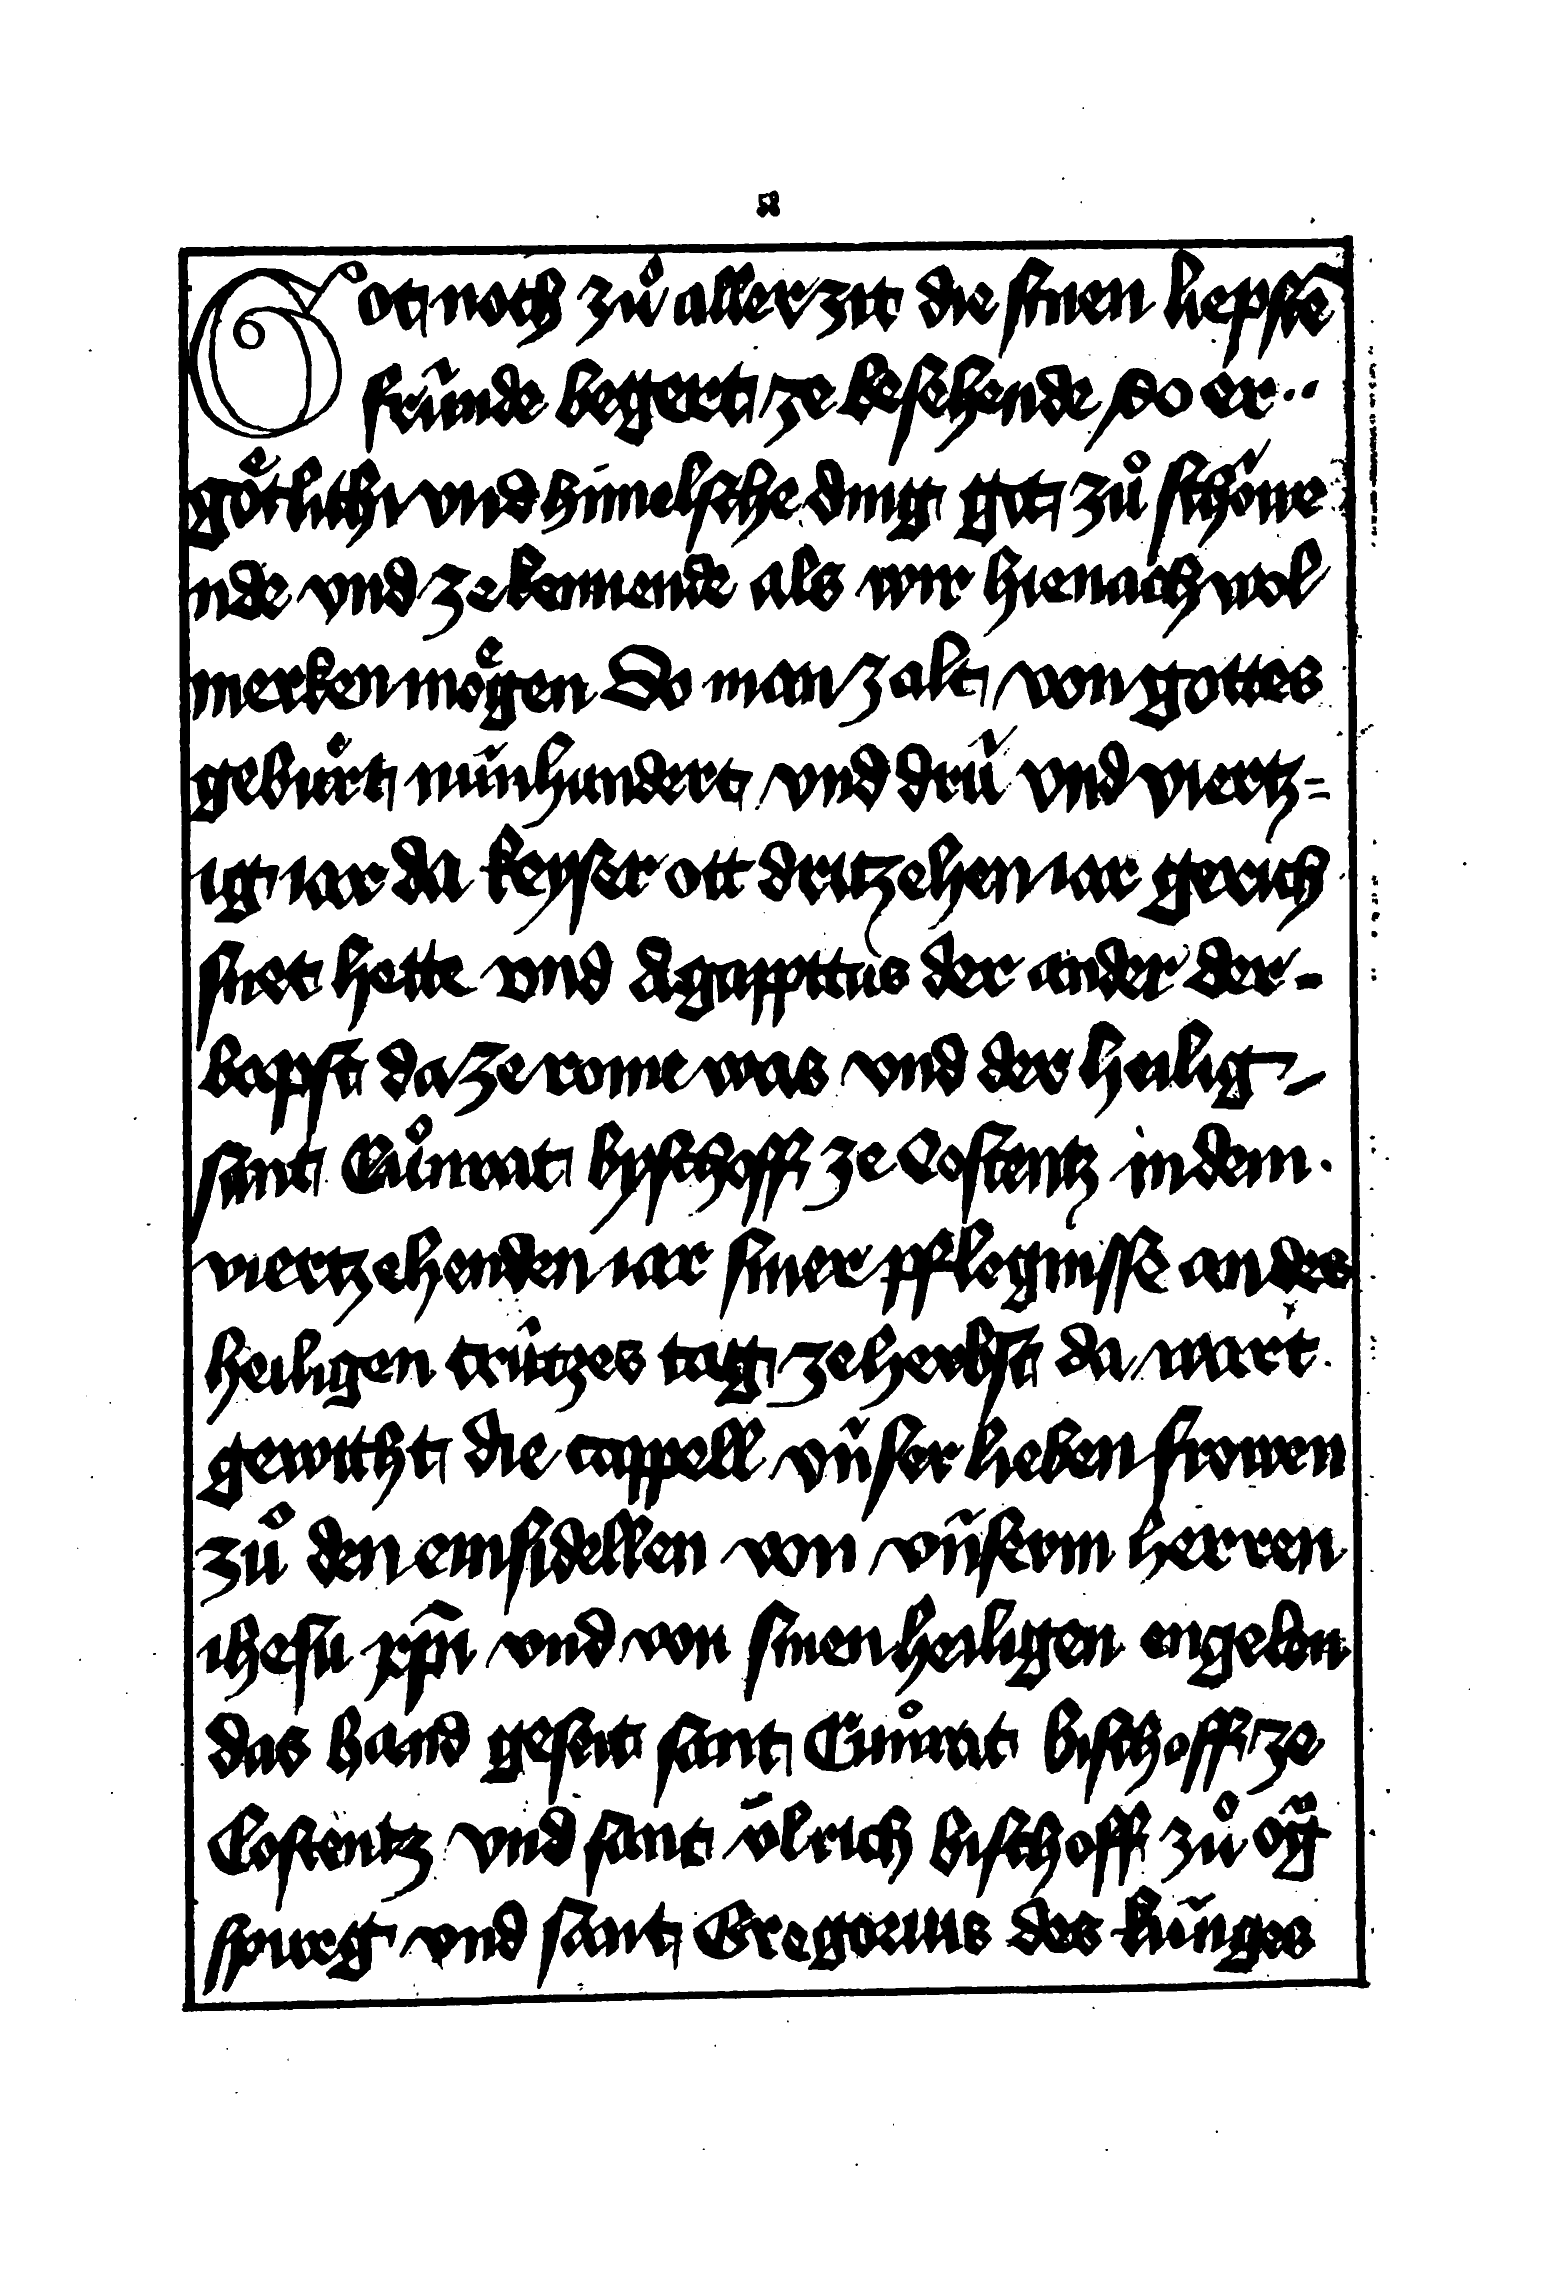 Got noch zuͦ aller zit die sinen liepstē
frùnde begert ze besehende So er··
goͤtlichi vnd himelsche ding git zuͦ schoͮwe
nde vnd ze kennende als wir hienach wol
merken moͤgen Do man zalt von gottes
gebuͤrt nùnhundert vnd drù vnd viertz=
ig iar da keyser ott dritzehen iar gerich
snet hette vnd Agappitus der ander der-
bapst da ze rome was vnd der heilig-
sant Cuͦnrat byschoff ze Costentz in dem.
viertzehenden iar siner pflegnisse an des
heiligen crùtzes tag ze herbst da wart.
gewicht die cappell vnser lieben frowen
zuͦ den einsidellen von vnserm herren
ihesu xp̄i vnd von sinen heiligen engelon
das hand geseit sant Cuͦnrat bischoff ze
Costentz vnd sant vͦlrich bischoff zuͦ oͮg
spurg vnd sant Gregorius des kùnges